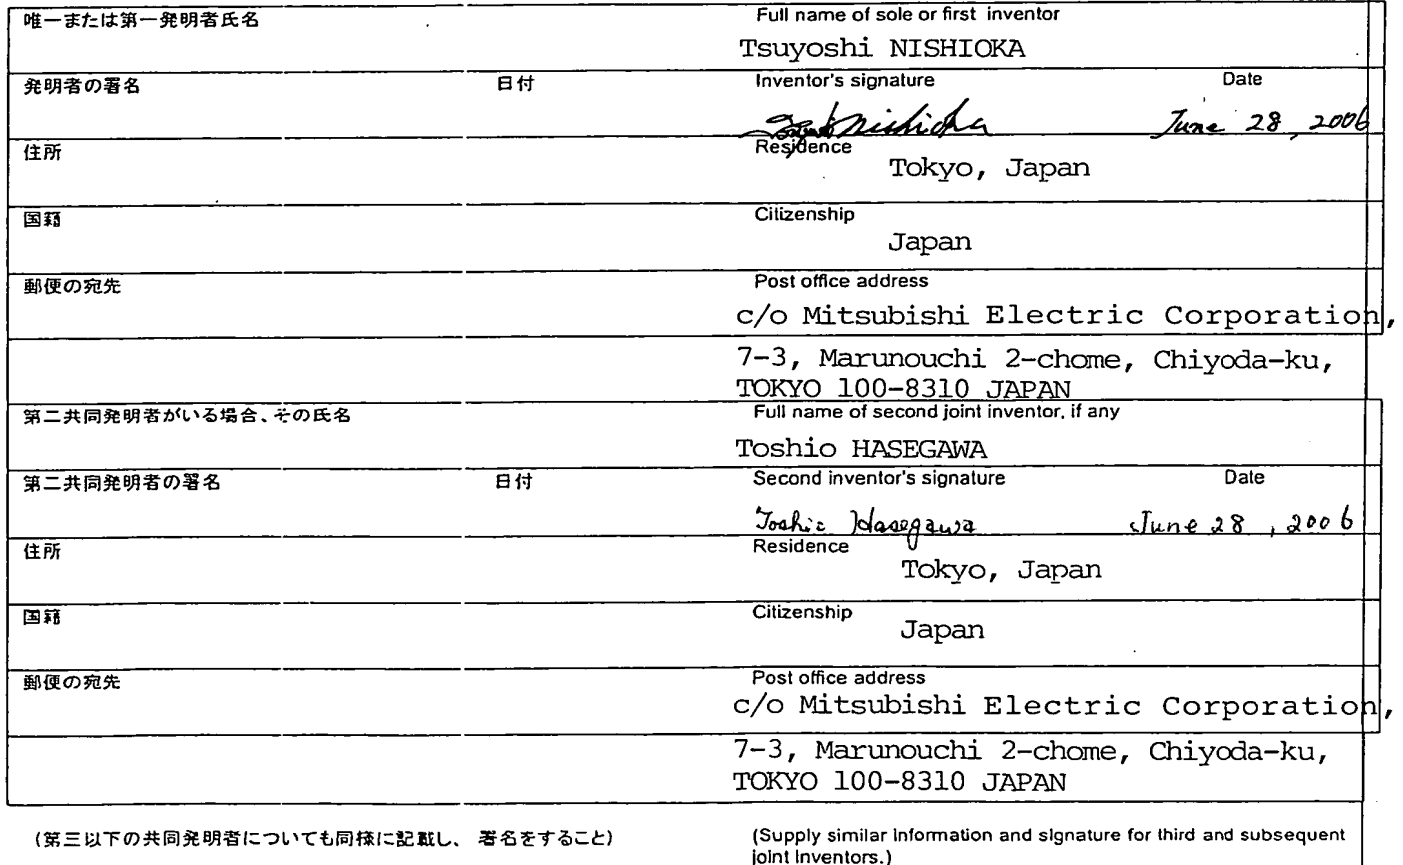 唯一または第一発明者氏名 Full name of sole or first inventor
Tsuyoshi NISHIOKA
発明者の署名 日付 Inventor's signature Date
Nishioka June 28, 2006
住所 Residence
Tokyo, Japan
国籍 Citizenship
Japan
郵便の宛先 Post office address
c/o Mitsubishi Electric Corporation,
7-3, Marunouchi 2-chome, Chiyoda-ku,
TOKYO 100-8310 JAPAN
第二共同発明者がいる場合、その氏名 Full name of second joint inventor, if any
Toshio HASEGAWA
第二共同発明者の署名 日付 Second inventor's signature Date
Toshio Hasegawa June 28, 2006
住所 Residence
Tokyo, Japan
国籍 Citizenship
Japan
郵便の宛先 Post office address
c/o Mitsubishi Electric Corporation,
7-3, Marunouchi 2-chome, Chiyoda-ku,
TOKYO 100-8310 JAPAN
(第三以下の共同発明者についても同様に記載し、署名をすること) (Supply similar information and signature for third and subsequent
joint inventors.)